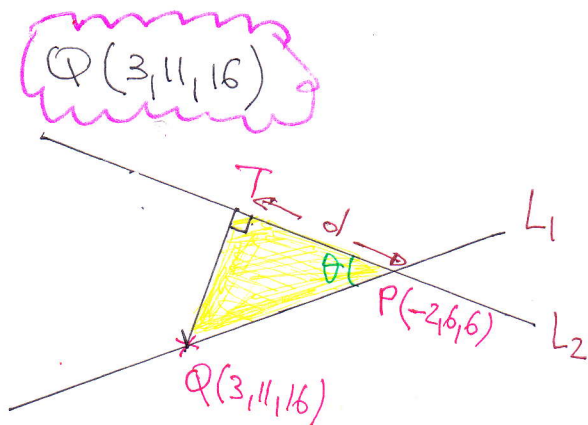 Q(3,11,16)
T
d
L₁
θ
P(-2,6,6)
L₂
Q(3,11,16)